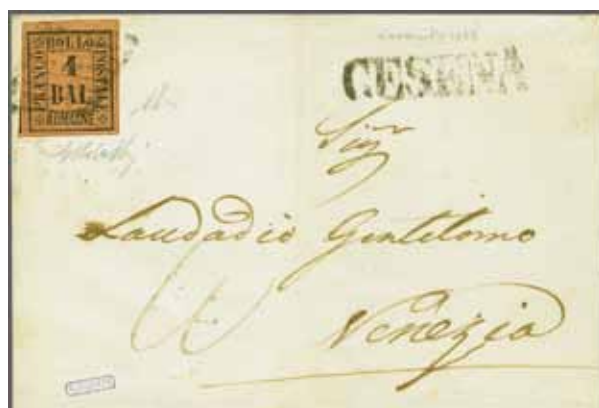 FRANCO
BOLLO
POSTALE
4
BAI
ROMAGNE
CESENA
Sigr
Laudadio Gentilomo
Venezia